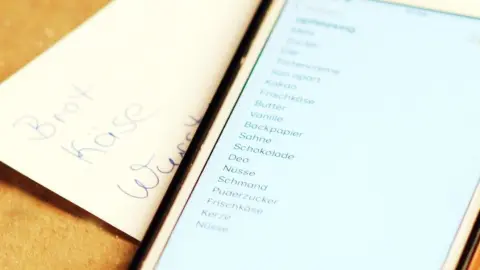 Brot
Käse
Wurst
Kakao
Frischkäse
Butter
Vanille
Backpapier
Sahne
Schokolade
Deo
Nüsse
Schmand
Puderzucker
Frischkäse
Kerze
Nüsse